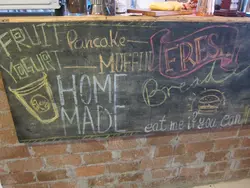 FRUIT
YOGURT
Pancake
MUFFIN
FRIES
HOME
MADE
Bread
eat me if you can!!